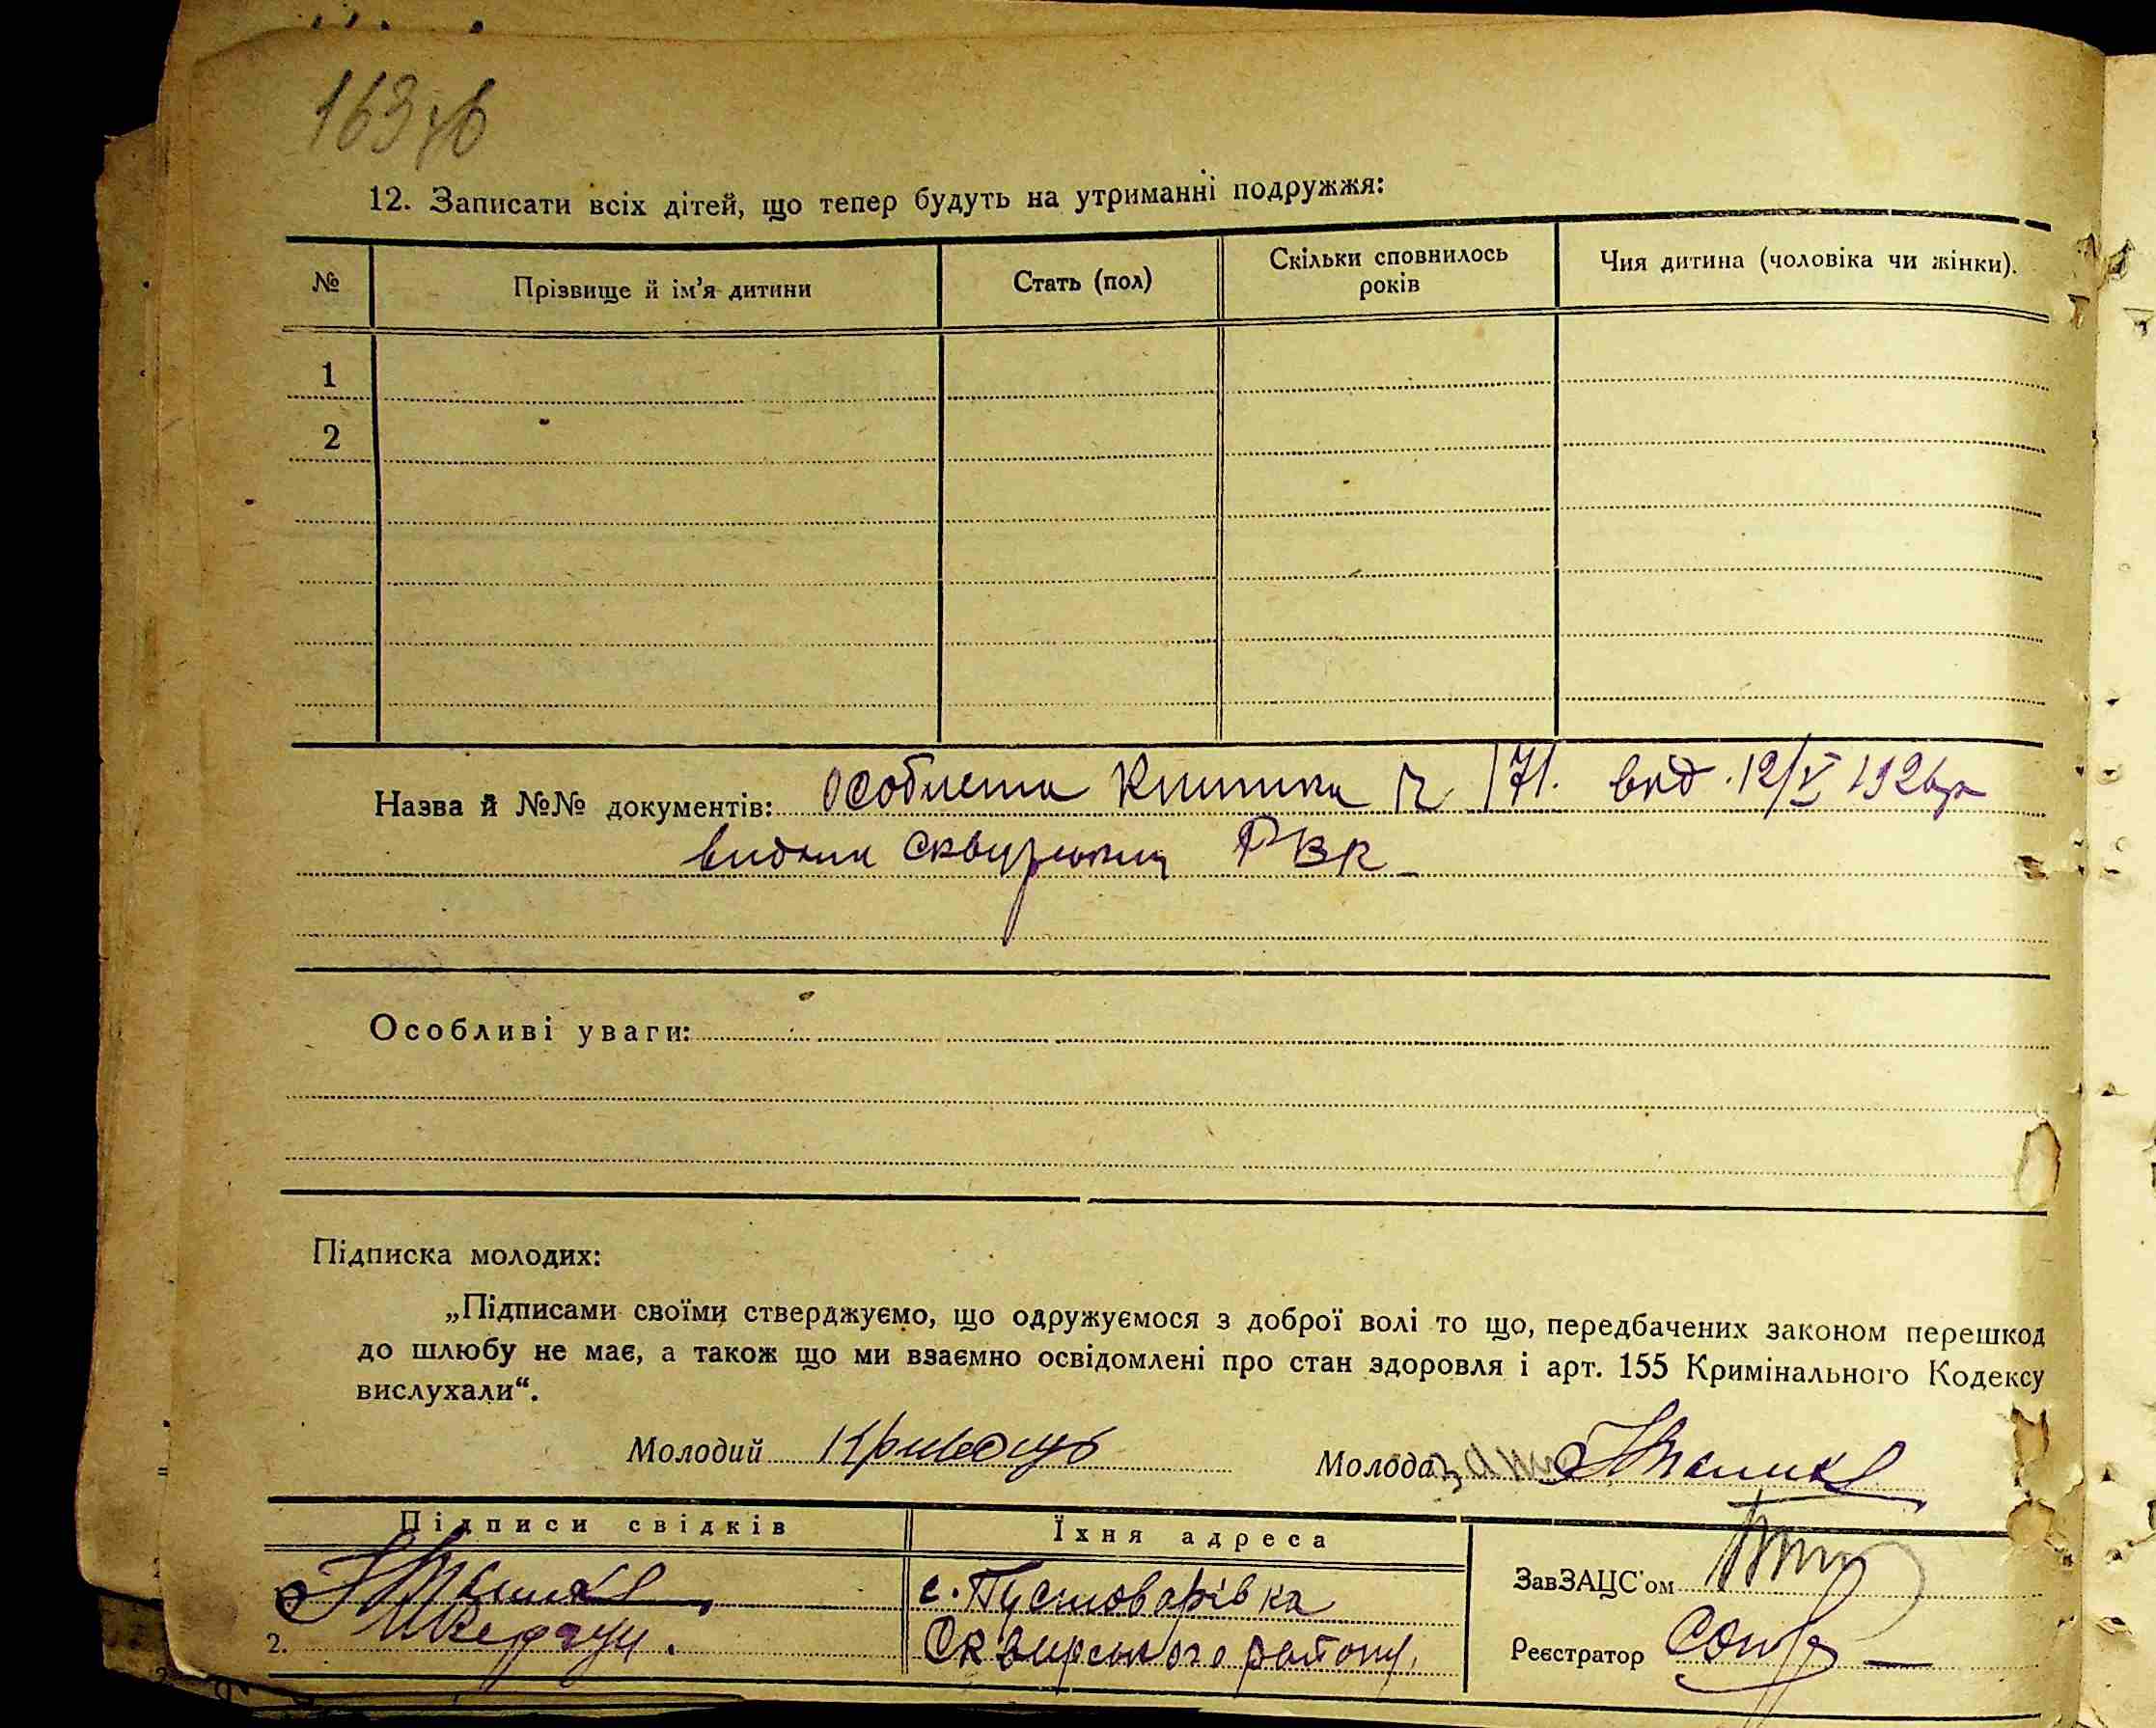 163 зв
12. Записати всіх дітей, що тепер будуть на утриманні подружжя:
№ Прізвище й ім'я дитини Стать (пол) Скільки сповнилось років Чия дитина (чоловіка чи жінки).
1
2
Назва й №№ документів: особиста книжка № 171. від 12/V 1926р
видана сквирським РВК
Особливі уваги:
Підписка молодих:
„Підписами своїми стверджуємо, що одружуємося з доброї волі то що, передбачених законом перешкод
до шлюбу не має, а також що ми взаємно освідомлені про стан здоровля і арт. 155 Кримінального Кодексу
вислухали“.
Молодий Молода
Підписи свідків Їхня адреса
ЗавЗАЦС'ом
с. Пустоварівка
2. Сквирського району.
Реєстратор